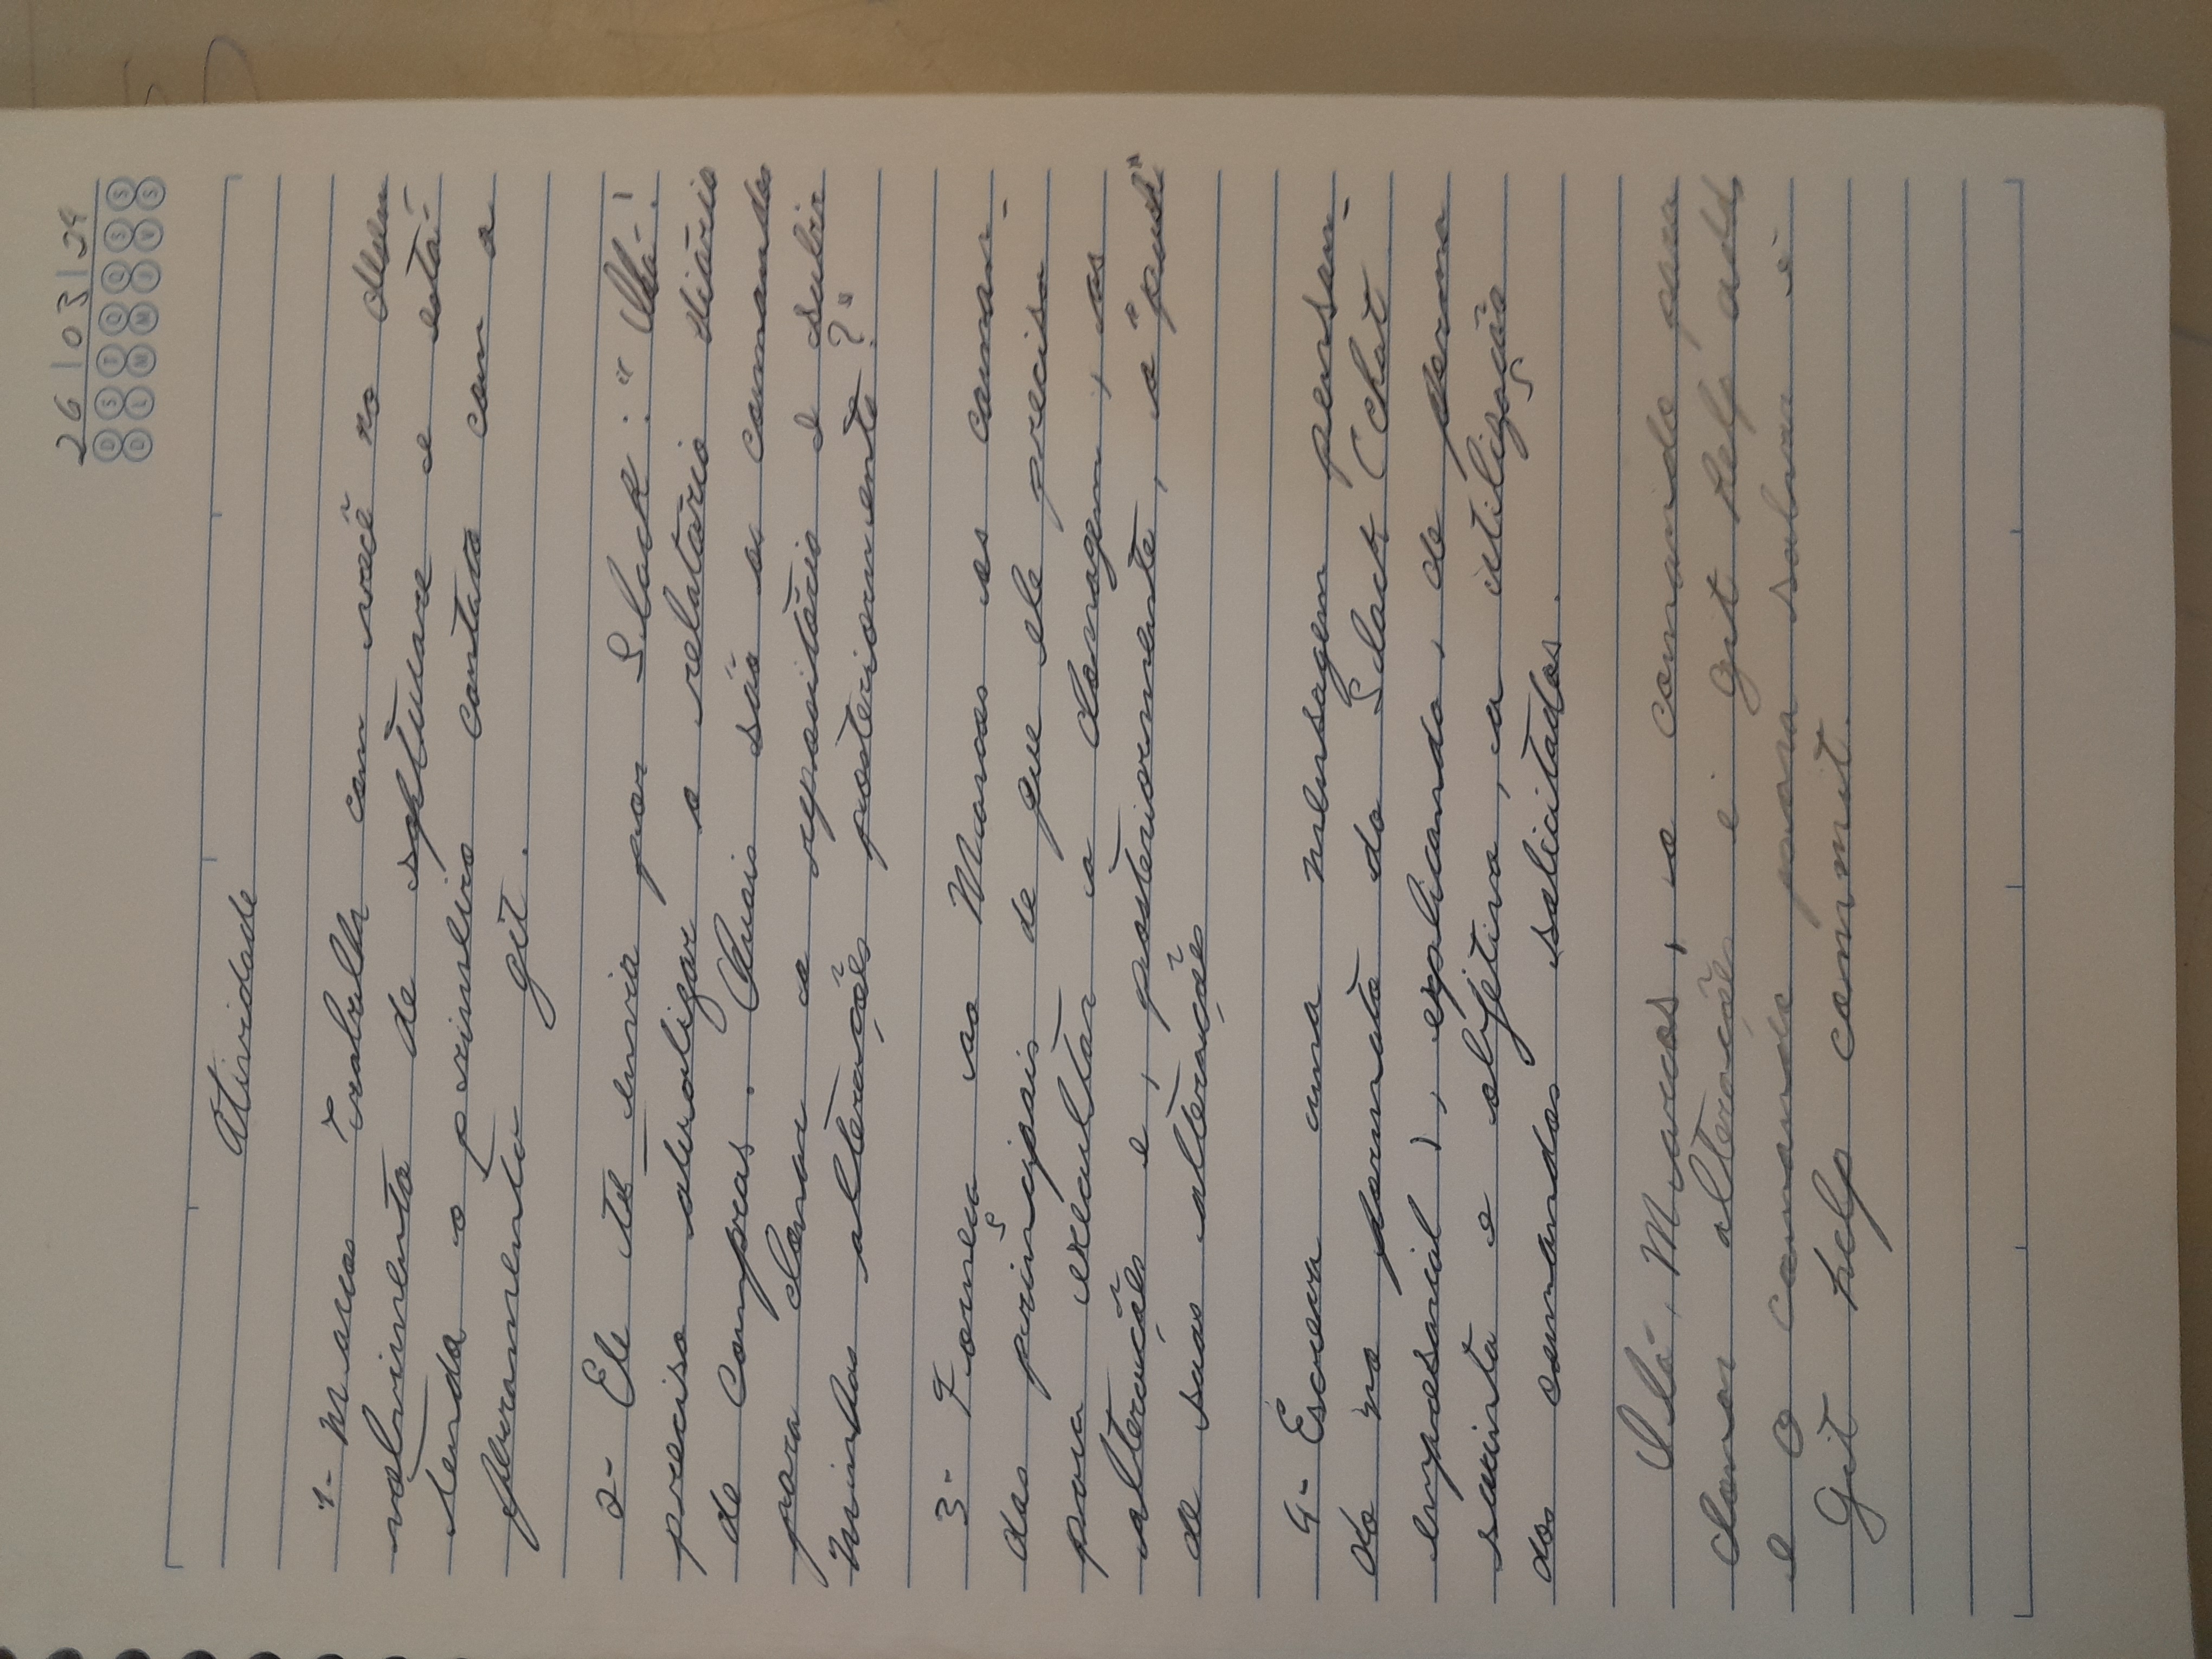 26/03/24
D S T Q Q S S
D L M M J V S
Atividade
1- Marcos trabalha com você no desen
volvimento de software e está
tendo o primeiro contato com a
ferramenta git.
2- Ele te envia por Slack: "Olá!
preciso atualizar o relatório diário
de compras. Quais são os comandos
para clonar o repositório e subir
minhas alterações posteriormente?"
3- Forneça ao Marcos os coman-
dos principais de que ele precisa
para execultar a clonagem, as
alterações e, posteriormente, o "push"
de suas alterações
4- Escreva uma mensagem pensan-
do no formato do Slack (chat
empresarial), explicando, de forma
sucinta e objetiva, a utilização
dos comandos solicitados.
Olá, Marcos, o comando para
clonar alterações é git help add
e o comando para salvar é
Git help commit.